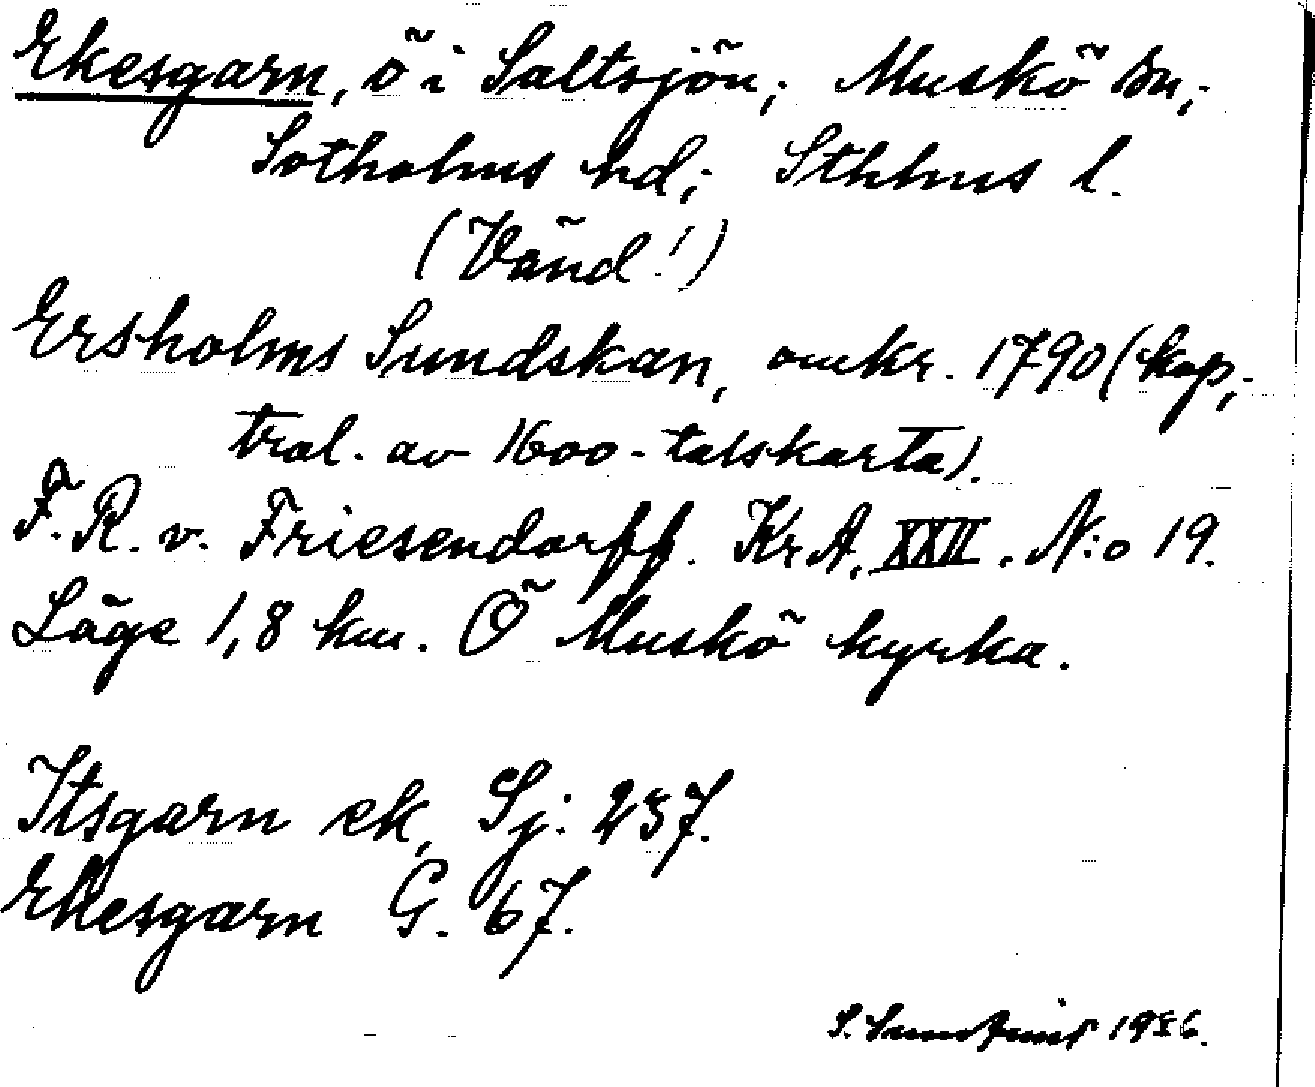 Ekesgarn, ö i Saltsjön; Muskö sn,;
Sotholms hd; Sthlms l.
(Vänd!)
Ersholms Sundskan, omkr. 1790 (kop,-
tral. av 1600-talskarta).
F. R. v. Friesendorff. Kr A, XXII. N:o 19.
Läge 1,8 km. Ö Muskö kyrka.
Itsgarn ek, Sj: 237.
Ekesgarn G. 67.
S. 19